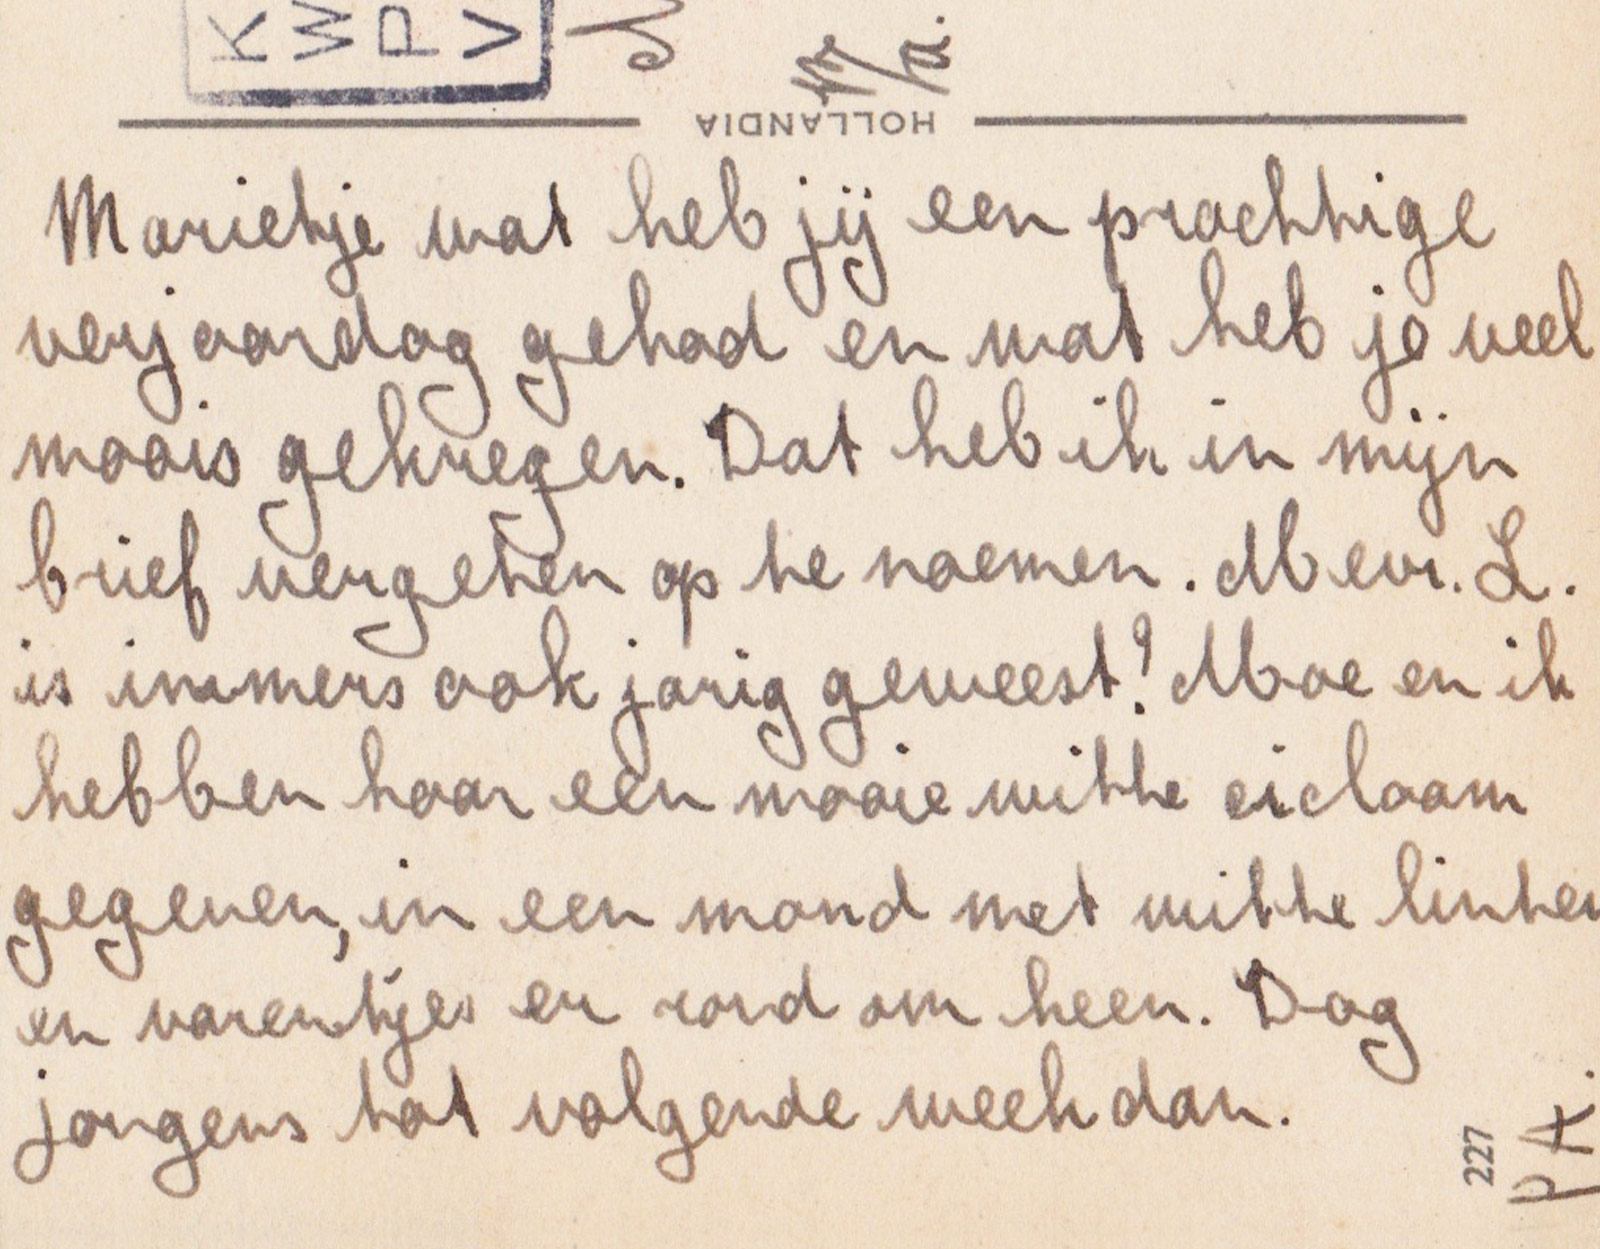 K
W
P
V
HOLLANDIA
Marietje wat heb jij een prachtige
verjaardag gehad en wat heb je veel
moois gekregen. Dat heb ik in mijn
brief vergeten op te noemen. Mevr. L.
is immers ook jarig geweest? Moe en ik
hebben haar een mooie witte ciclaam
gegeven, in een mand met witte linten
en varentjes er rond om heen. Dag
jongens tot volgende week dan.
227